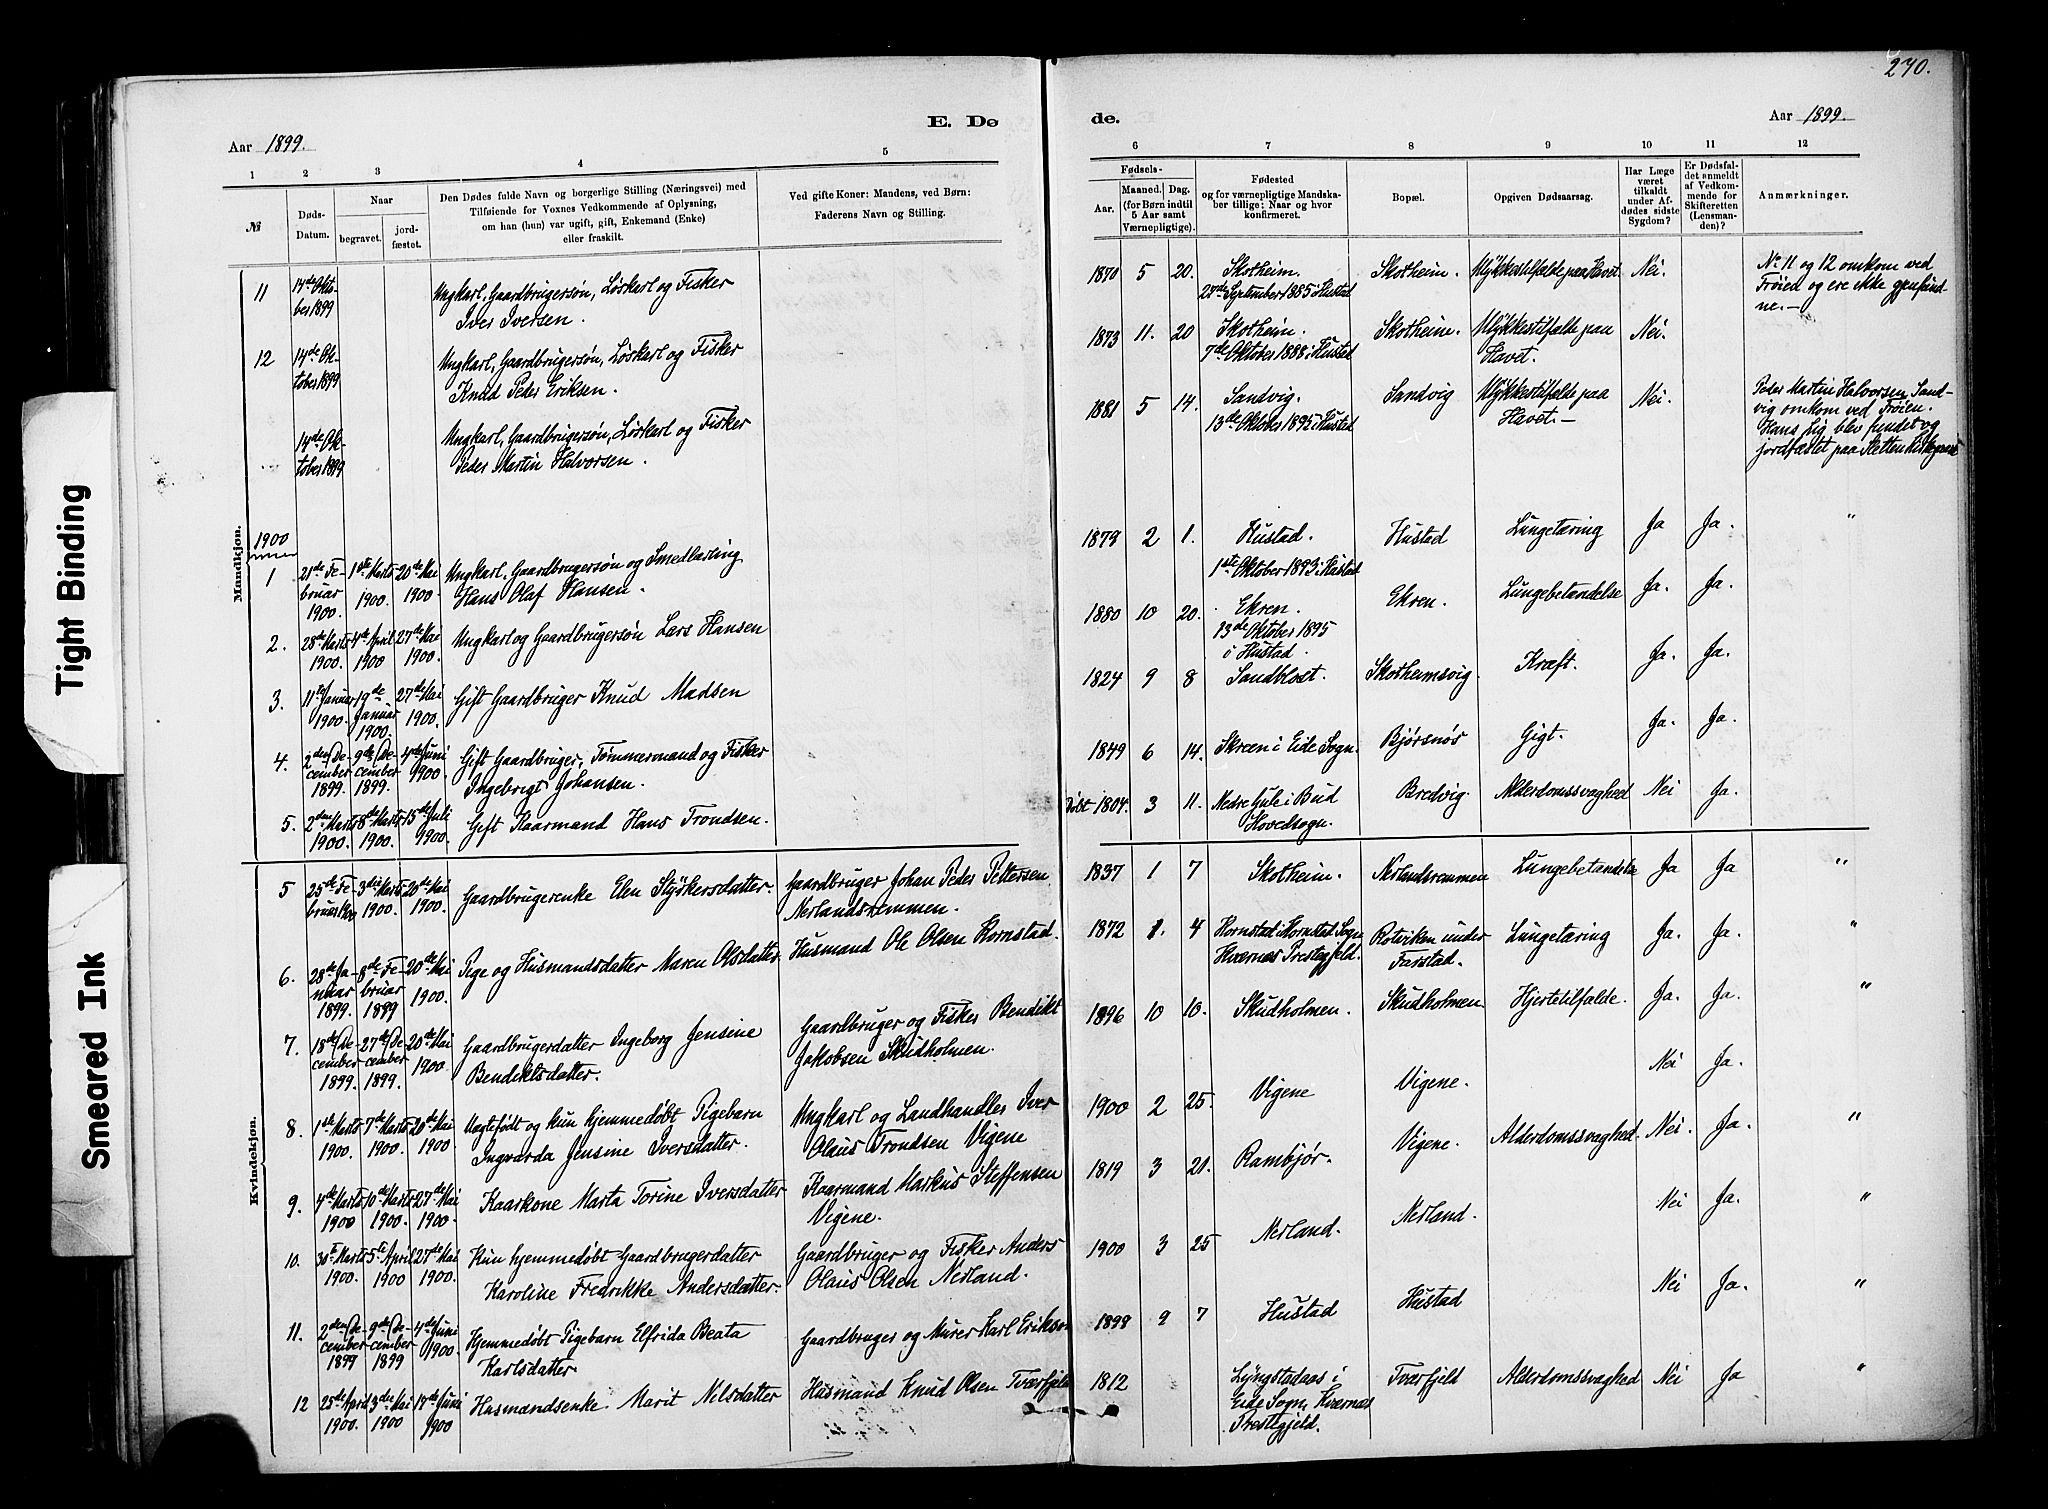 270.
E. Dø
de.
Aar 1899.
Aar 1899.
1 2 3 4 5
6 7 8 9 10 11 12
№
Døds-
Datum.
Naar
begravet.
jord-
fæstet.
Den Dødes fulde Navn og borgerlige Stilling (Næringsvei) med
Tilføiende for Voxnes Vedkommende af Oplysning,
om han (hun) var ugift, gift, Enkemand (Enke)
eller fraskilt.
Ved gifte Koner: Mandens, ved Børn:
Faderens Navn og Stilling.
Fødsels-
Aar.
Maaned. Dag.
(for Børn indtil
5 Aar samt
Værnepligtige).
Fødested
og for værnepligtige Mandska-
ber tillige: Naar og hvor
konfirmeret.
Bopæl.
Opgiven Dødsaarsag.
Har Læge
været
tilkaldt
under Af-
dødes sidste
Sygdom?
Er Dødsfal-
det anmeldt
af Vedkom-
mende for
Skifteretten
(Lensman-
den)?
Anmærkninger.
Mandkjøn.
11 14de Okto-
ber 1899
Ungkarl, Gaardbrugersøn, Løskarl og Fisker
Iver Iversen.
1870 5 20. Skotheim. Skotheim. Ulykkestilfælde paa Havet Nei.
27de September 1885 i Hustad
No 11 og 12 omkom ved
Frøien og ere ikke gjenfund-
ne.—
12 14de Ok-
tober 1899
Ungkarl, Gaardbrugersøn, Løskarl og Fisker
Knud Peder Eriksen.
1873 11. 20 Skotheim. Skotheim. Ulykkestilfælde paa Nei.
7de Oktober 1888 i Hustad Havet.
14de Ok-
tober 1899
Ungkarl, Gaardbrugersøn, Løskarl og Fisker
Peder Martin Halvorsen.
1881 5 14. Sandvig. Sandvig Ulykkestilfælde paa Nei.
13de Oktober 1895 i Hustad Havet.—
Peder Martin Halvorsen Sand-
vig omkom ved Frøien.
Hans Lig blev fundet og
jordfæstet paa
1900
1 21de Fe- 1ste Marts 20de Mai
bruar 1900. 1900. 1900.
Ungkarl, Gaardbrugersøn og Smedlærling
Hans Olaf Hansen.
1879 2 1. Hustad. Hustad Lungetæring Ja Ja. "
1ste Oktober 1893 i Hustad
2. 28de Marts 4de April 27de Mai
1900. 1900 1900.
Ungkarl og Gaardbrugersøn Lars Hansen
1880 10 20. Ekren. Ekren. Lungebetændelse Ja. Ja.
13de Oktober 1895
i Hustad.
3. 11te Januar 19de Januar 27de Mai
1900. 1900. 1900.
Gift Gaardbruger Knud Madsen
1824 9 8 Sandblost. Skotheimsvig. Kræft. Ja. Ja.
4. 2den De- 9de De- 4de Juni
cember cember 1900.
1899. 1899.
Gift Gaardbruger, Tømmermand og Fisker
Ingebrigt Johansen.
1849 6 14. Skreen i Eide Sogn. Bjørsnøs Gigt. Ja. Ja.
5. 2den Marts 8de Marts 15de Juli
1900. 1900. 1900.
Gift Kaarmand Hans Trondsen.
Døbt 1804. 3 11. Nedre Gule i Bud Bredvig. Alderdomssvaghed Nei Ja.
Hovedsogn.
Kvindekjøn.
5 25de Fe- 3die Marts 20de Mai
bruar 1900. 1900.
Gaardbrugerenke Elen Styrkersdatter. Gaardbruger Johan Peder Pettersen
Nerlandsremmen.
1837 1 7 Skotheim. Nerlandsremmen Lungebetændelse Ja Ja "
6. 28de Ja- 8de Fe- 20de Mai
nuar bruar 1900.
1899. 1899
Pige og Husmandsdatter Maren Olsdatter. Husmand Ole Olsen Kornstad.
1872 1. 4 Kornstad i Kornstad Sogn Rotviken under Lungetæring Ja. Ja. "
Kvernes Prestegjeld. Farstad.
7. 18de De- 27de De- 20de Mai
cember cember 1900.
1899. 1899.
Gaardbrugerdatter Ingeborg Jensine Gaardbruger og Fisker Bendikt
Bendiktsdatter. Jakobsen Skudholmen.
1896 10 10. Skudholmen. Skudholmen. Hjertetilfælde. Ja. Ja. "
8. 1ste Marts 7de Marts 20de Mai
1900. 1900. 1900
Uægtefødt og kun hjemmedøbt Pigebarn Ungkarl og Landhandler Iver
Ingvarda Jensine Iversdatter. Olaus Trondsen Vigene
1900 2 25. Vigene Vigene. Nei Ja.
9. 4de Marts 10de Marts 27de Mai
1900 1900. 1900.
Kaarkone Marta Torine Iversdatter Kaarmand Markus Steffensen
Vigene.
1819 3 21. Rambjør. Vigene. Alderdomssvaghed. Nei. Ja. "
10. 30te Marts 5te April 27de Mai
1900. 1900 1900.
Kun hjemmedøbt Gaardbrugerdatter Gaardbruger og Fisker Anders
Karoline Fredrikke Andersdatter. Olaus Olsen Nerland.
1900 3 25 Nerland. Nerland. Nei Ja. "
11. 2den De- 9de De- 4de Juni
cember cember 1900.
1899 1899
Hjemmedøbt Pigebarn Elfrida Beata Gaardbruger og Murer Karl Eriksen
Karlsdatter.
1899 9 7 Hustad Hustad Nei Ja. "
12 25de April 3die Mai 17de Juni
1900. 1900 1900
Husmandsenke Marit Nilsdatter Husmand Knud Olsen Tværfjeld
1812 Lyngstadaas i Tværfjeld Alderdomssvaghed Nei Ja "
Eide Sogn, Kvernes
Prestegjeld.
Tight Binding
Smeared Ink